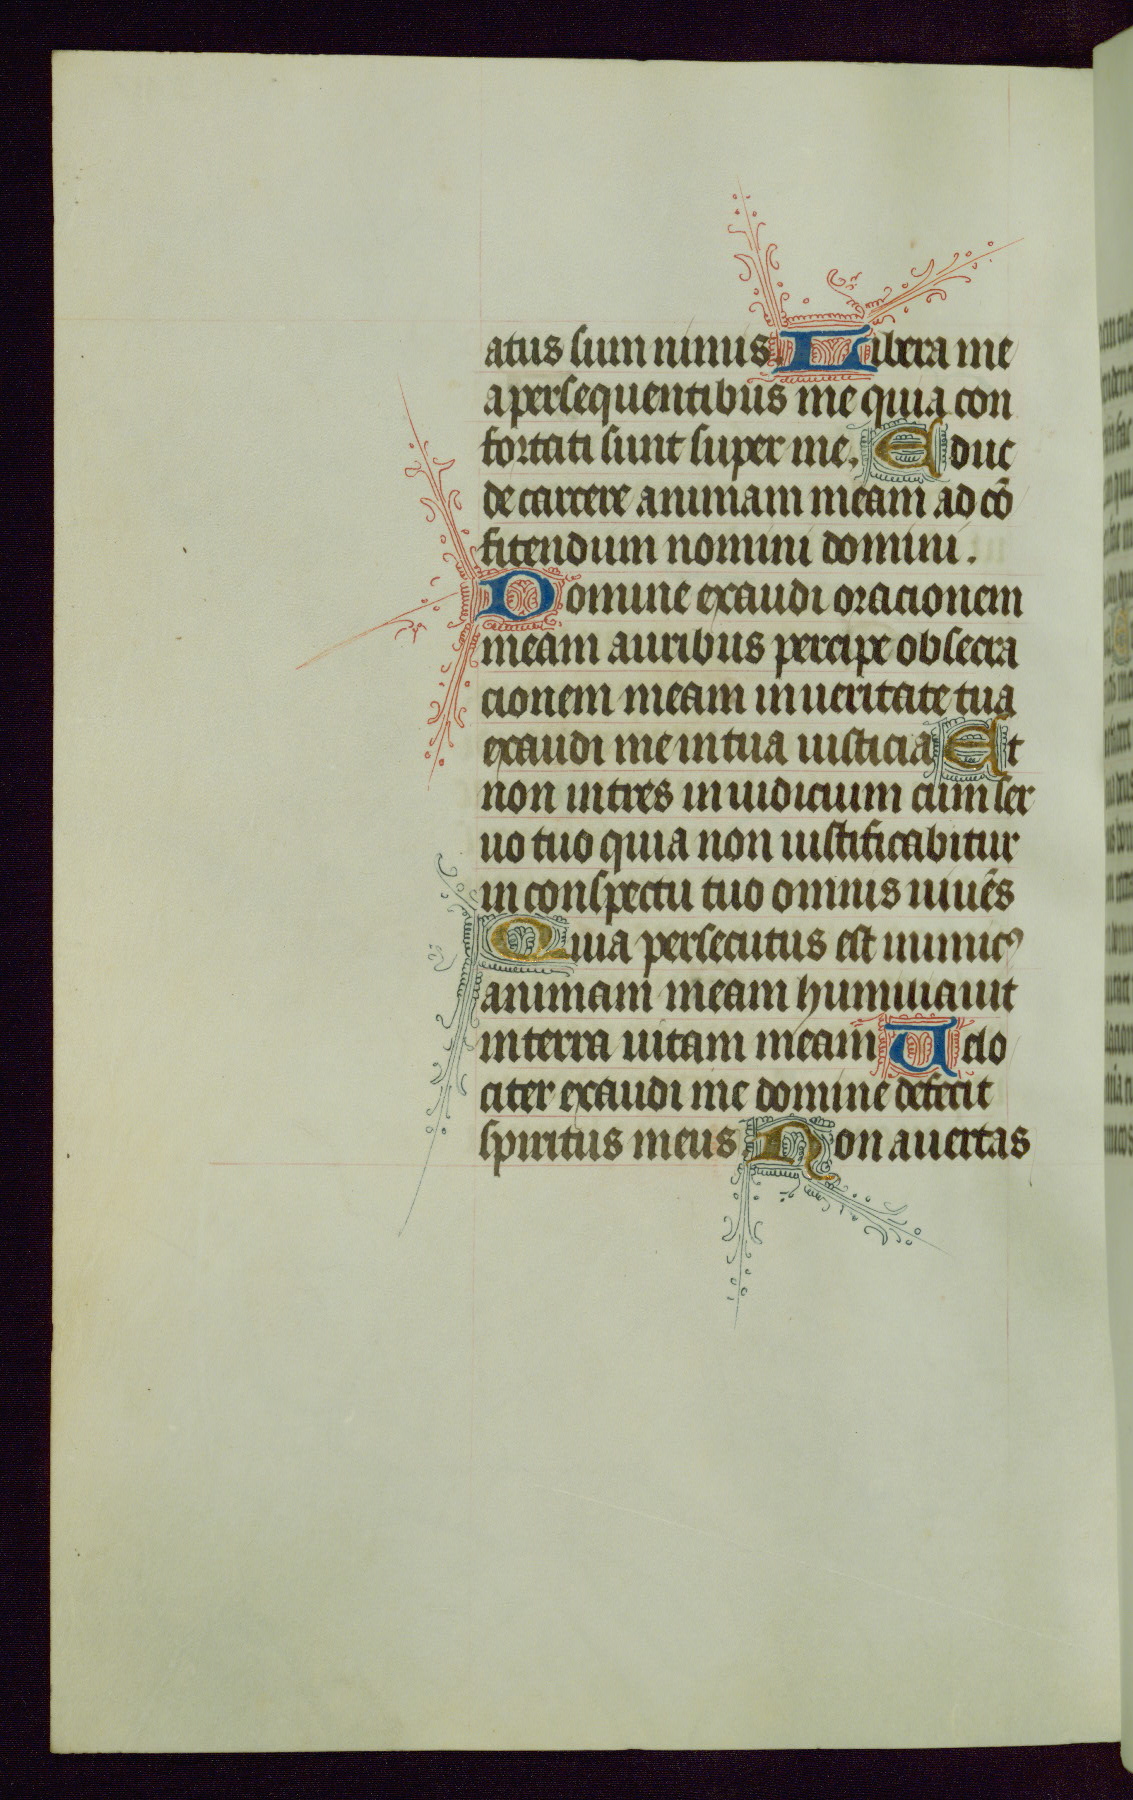 atus sum nimis. Libera me
a persequentibus me quia con
fortati sunt super me. Educ
de carcere animam meam ad cō
fitendum nomini domini.
Domine exaudi oracionem
meam auribus percipe obsecra
cionem meam in ueritate tua
exaudi me in tua iusticia Et
non intres in iudicium cum ser
uo tuo quia non iustificabitur
in conspectu tuo omnis uiuēs
Quia persecutus est inimicꝰ
animam meam humiliauit
in terra uitam meam Uelo
citer exaudi me domine defecit
spiritus meus Non auertas